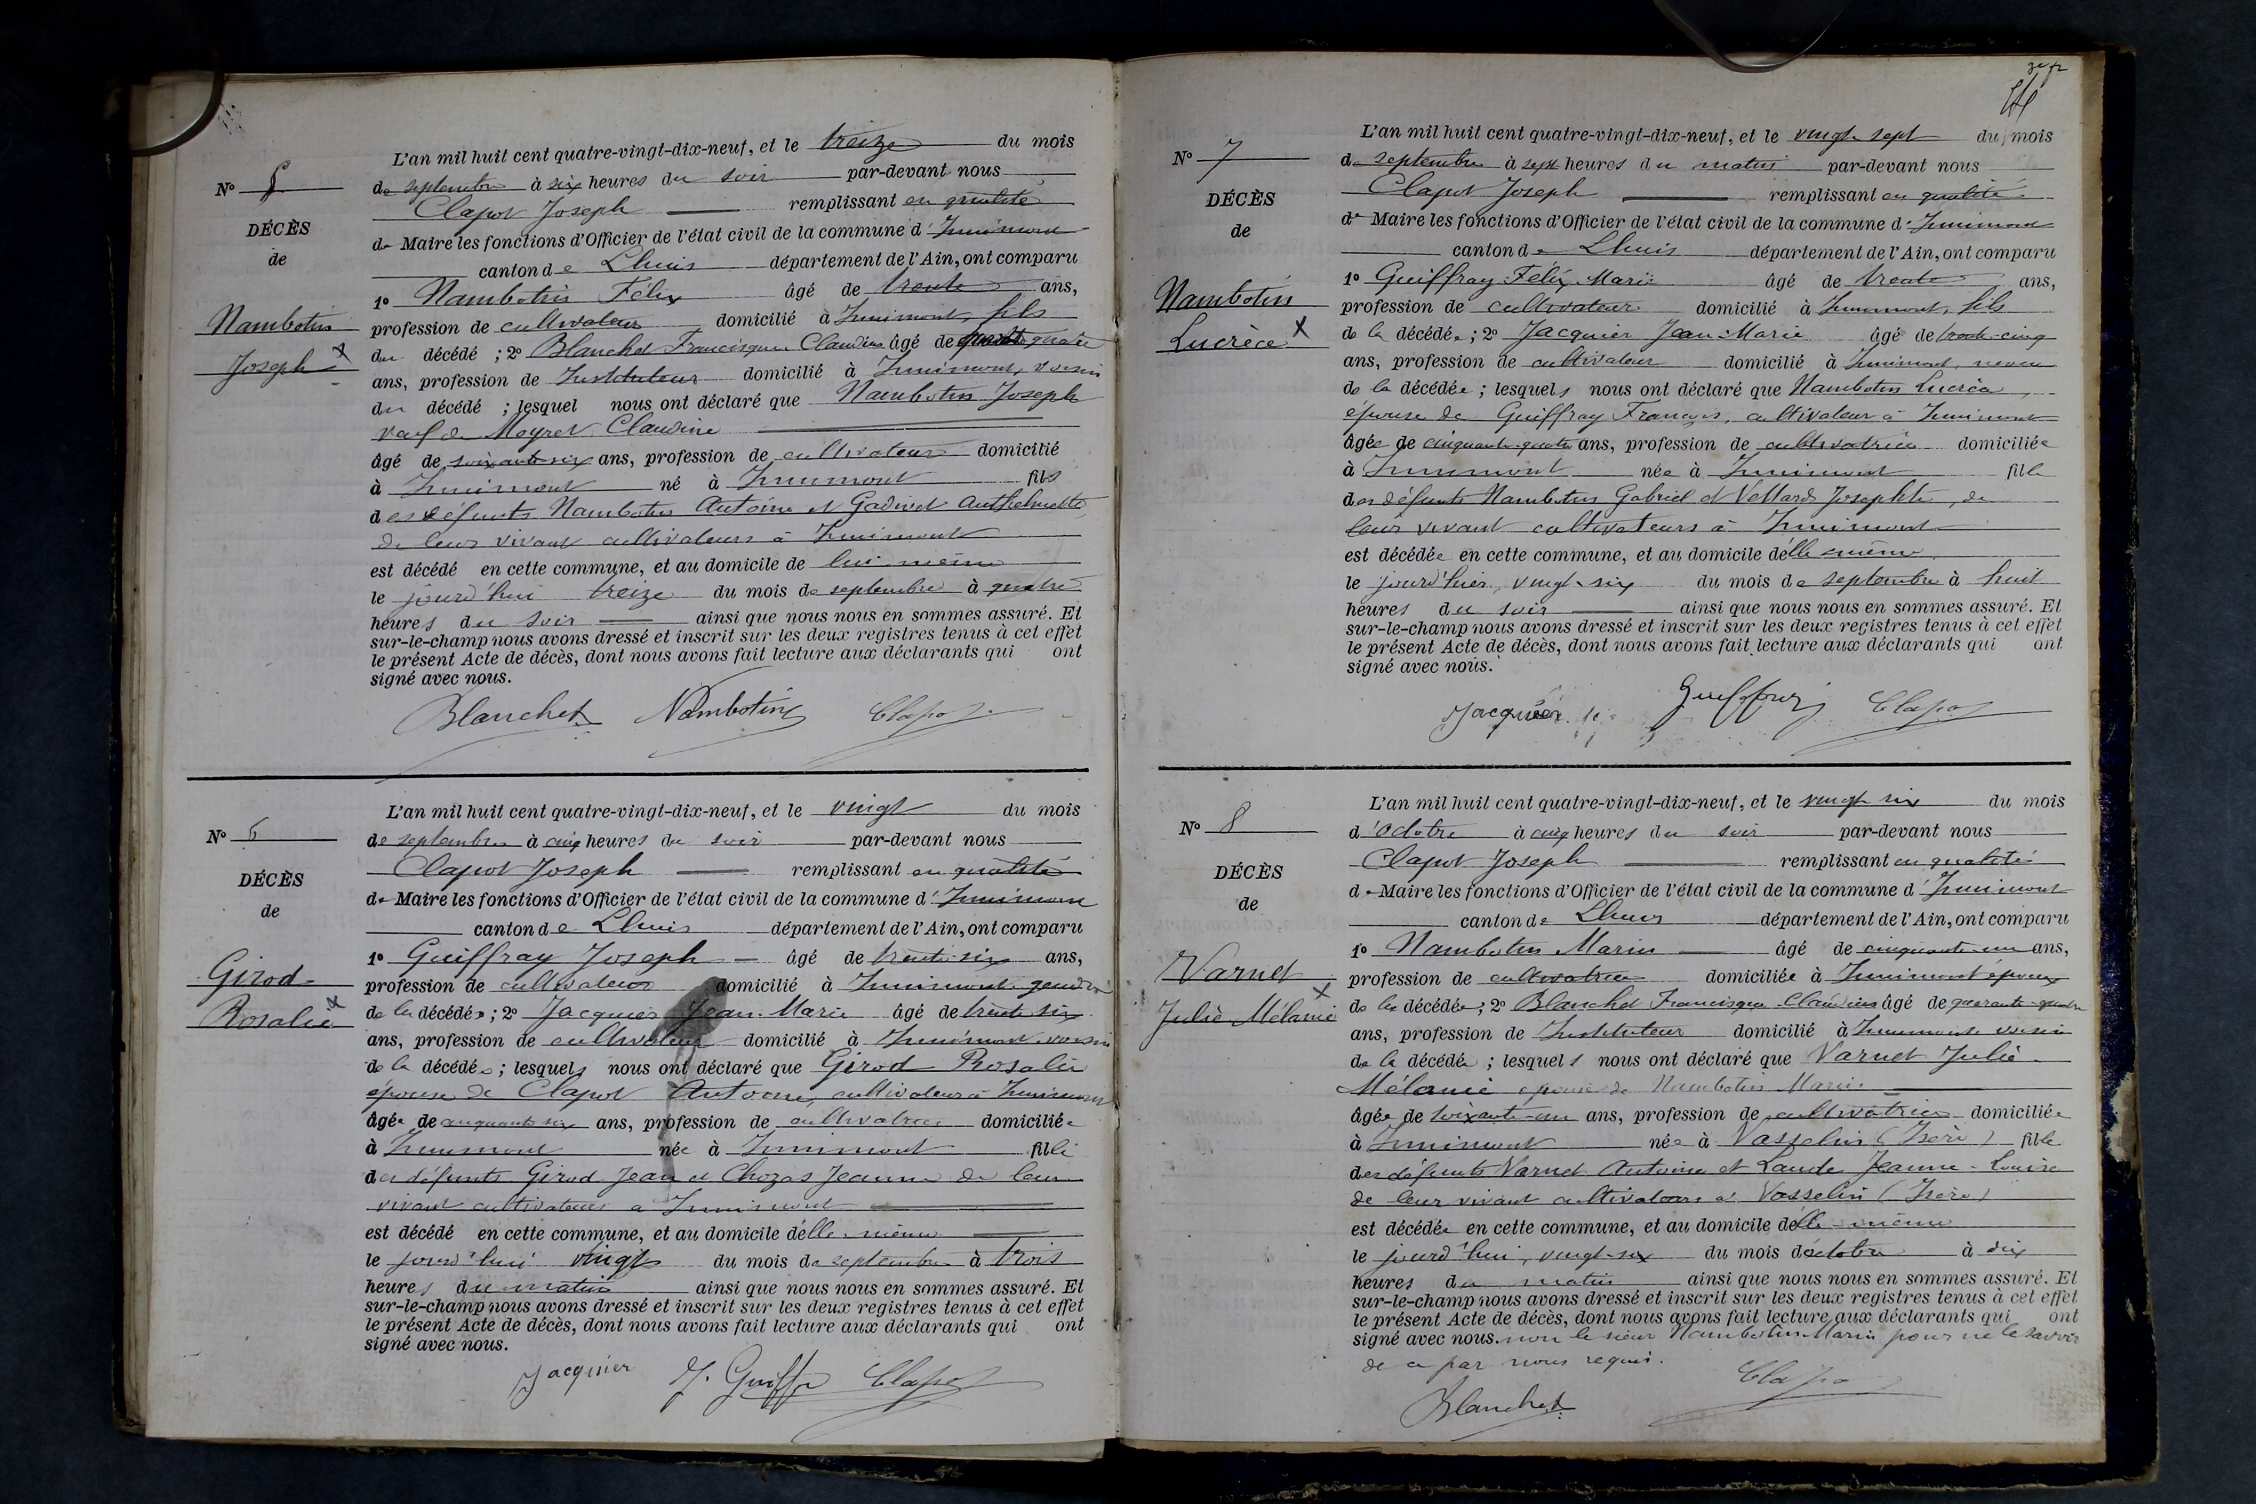 L'an mil huit cent quatre-vingt-dix-neuf, et le treize du mois
de septembre à six heures du soir par-devant nous
Clapot Joseph remplissant en qualité
de Maire les fonctions d'Officier de l'état civil de la commune d'Innimont
canton de Lhuis département de l'Ain, ont comparu
1º Nambotin Félix âgé de trente ans,
profession de cultivateur domicilié à Innimont, fils
du décédé ; 2º Blanchet Francisque Claudius âgé de quatre
ans, profession de Instituteur domicilié à Innimont, voisin
du décédé ; lesquel nous ont déclaré que Nambotin Joseph
veuf de Meyret Claudine
âgé de soixante-six ans, profession de cultivateur domicilié
à Innimont né à Innimont fils
des défunts Nambotin Antoine et Godivet Anthelmette
de leur vivant cultivateurs à Innimont
est décédé en cette commune, et au domicile de lui-même
le jourd'hui treize du mois de septembre à quatre
heures du soir ainsi que nous nous en sommes assuré. Et
sur-le-champ nous avons dressé et inscrit sur les deux registres tenus à cet effet
le présent Acte de décès, dont nous avons fait lecture aux déclarants qui ont
signé avec nous.
Blanchet Nambotin Clapot
Nº
DÉCÈS
de
Nambotin
Joseph x
L'an mil huit cent quatre-vingt-dix-neuf, et le vingt du mois
de septembre à cinq heures du soir par-devant nous
Clapot Joseph remplissant en qualité
de Maire les fonctions d'Officier de l'état civil de la commune d'Innimont
canton de Lhuis département de l'Ain, ont comparu
1º Guiffray Joseph âgé de trente-six ans,
profession de cultivateur domicilié à Innimont gendre
de la décédée ; 2º Jacquier Jean-Marie âgé de trente six
ans, profession de cultivateur domicilié à Innimont voisin
de la décédée ; lesquels nous ont déclaré que Girod Rosalie
épouse de Clapot Antoine, cultivateur à Innimont
âgée de cinquante six ans, profession de cultivatrice domiciliée
à Innimont née à Innimont fille
des défunts Girod Jean et Chozas Jeanne de leur
vivant cultivateurs à Innimont
est décédé en cette commune, et au domicile d'elle-même
le jourd'hui vingt du mois de septembre à trois
heures du matin ainsi que nous nous en sommes assuré. Et
sur-le-champ nous avons dressé et inscrit sur les deux registres tenus à cet effet
le présent Acte de décès, dont nous avons fait lecture aux déclarants qui ont
signé avec nous.
Jacquier J. Guiff Clapot
Nº 6
DÉCÈS
de
Girod
Rosalie x
L'an mil huit cent quatre-vingt-dix-neuf, et le vingt-sept du mois
de septembre à sept heures du matin par-devant nous
Clapot Joseph remplissant en qualité
de Maire les fonctions d'Officier de l'état civil de la commune d'Innimont
canton de Lhuis département de l'Ain, ont comparu
1º Guiffray Félix Marie âgé de trente ans,
profession de cultivateur domicilié à Innimont, fils
de la décédée ; 2º Jacquier Jean-Marie âgé de trente-cinq
ans, profession de cultivateur domicilié à Innimont, neveu
de la décédée ; lesquels nous ont déclaré que Nambotin Lucrèce,
épouse de Guiffray François, cultivateur à Innimont
âgée de cinquante-quatre ans, profession de cultivatrice domiciliée
à Innimont née à Innimont fille
des défunts Nambotin Gabriel et Vettard Josephte, de
leur vivant cultivateurs à Innimont
est décédée en cette commune, et au domicile d'elle-même
le jourd'hier, vingt-six du mois de septembre à huit
heures du soir ainsi que nous nous en sommes assuré. Et
sur-le-champ nous avons dressé et inscrit sur les deux registres tenus à cet effet
le présent Acte de décès, dont nous avons fait lecture aux déclarants qui ont
signé avec nous.
Jacquier Guiffray Clapot
Nº 7
DÉCÈS
de
Nambotin
Lucrèce x
L'an mil huit cent quatre-vingt-dix-neuf, et le vingt six du mois
d'octobre à cinq heures du soir par-devant nous
Clapot Joseph remplissant en qualité
de Maire les fonctions d'Officier de l'état civil de la commune d'Innimont
canton de Lhuis département de l'Ain, ont comparu
1º Nambotin Marin âgé de cinquante un ans,
profession de cultivatrice domiciliée à Innimont époux
de la décédée ; 2º Blanchet Francisque Claudius âgé de quarante-quatre
ans, profession de Instituteur domicilié à Innimont voisin
de la décédée ; lesquels nous ont déclaré que Varnet Julie
Mélanie épouse de Nambotin Marin
âgée de soixante-un ans, profession de cultivatrice domiciliée
à Innimont née à Vasselin (Isère) fille
des défunts Varnet Antoine et Laude Jeanne-Louise
de leur vivant cultivateurs à Vasselin (Isère)
est décédée en cette commune, et au domicile d'elle-même
le jourd'hui, vingt-six du mois d'octobre à dix
heures du matin ainsi que nous nous en sommes assuré. Et
sur-le-champ nous avons dressé et inscrit sur les deux registres tenus à cet effet
le présent Acte de décès, dont nous avons fait lecture aux déclarants qui ont
signé avec nous. non le sieur Nambotin Marin pour ne le savoir
de ce par nous requis.
Blanchet Clapot
Nº 8
DÉCÈS
de
Varnet
Julie Mélanie x